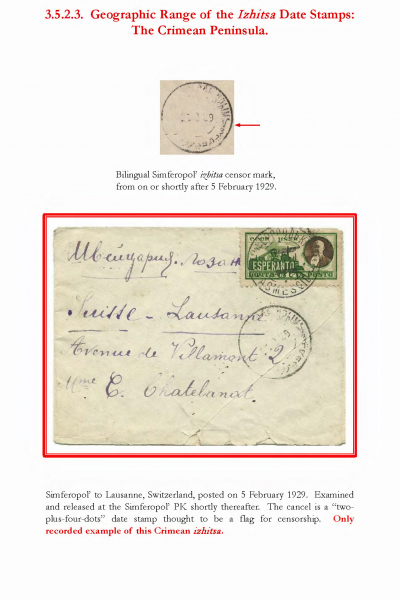 3.5.2.3. Geographic Range of the Izhitsa Date Stamps:
The Crimean Peninsula.
Bilingual Simferopol' izhitsa censor mark,
from on or shortly after 5 February 1929.
Швейцария. Лозан
ESPERANTO
Suisse – Lausanne
Avenue de Villamont 2
Mme C. Chatelanat
Simferopol' to Lausanne, Switzerland, posted on 5 February 1929. Examined
and released at the Simferopol' PK shortly thereafter. The cancel is a “two-
plus-four-dots” date stamp thought to be a flag for censorship. Only
recorded example of this Crimean izhitsa.